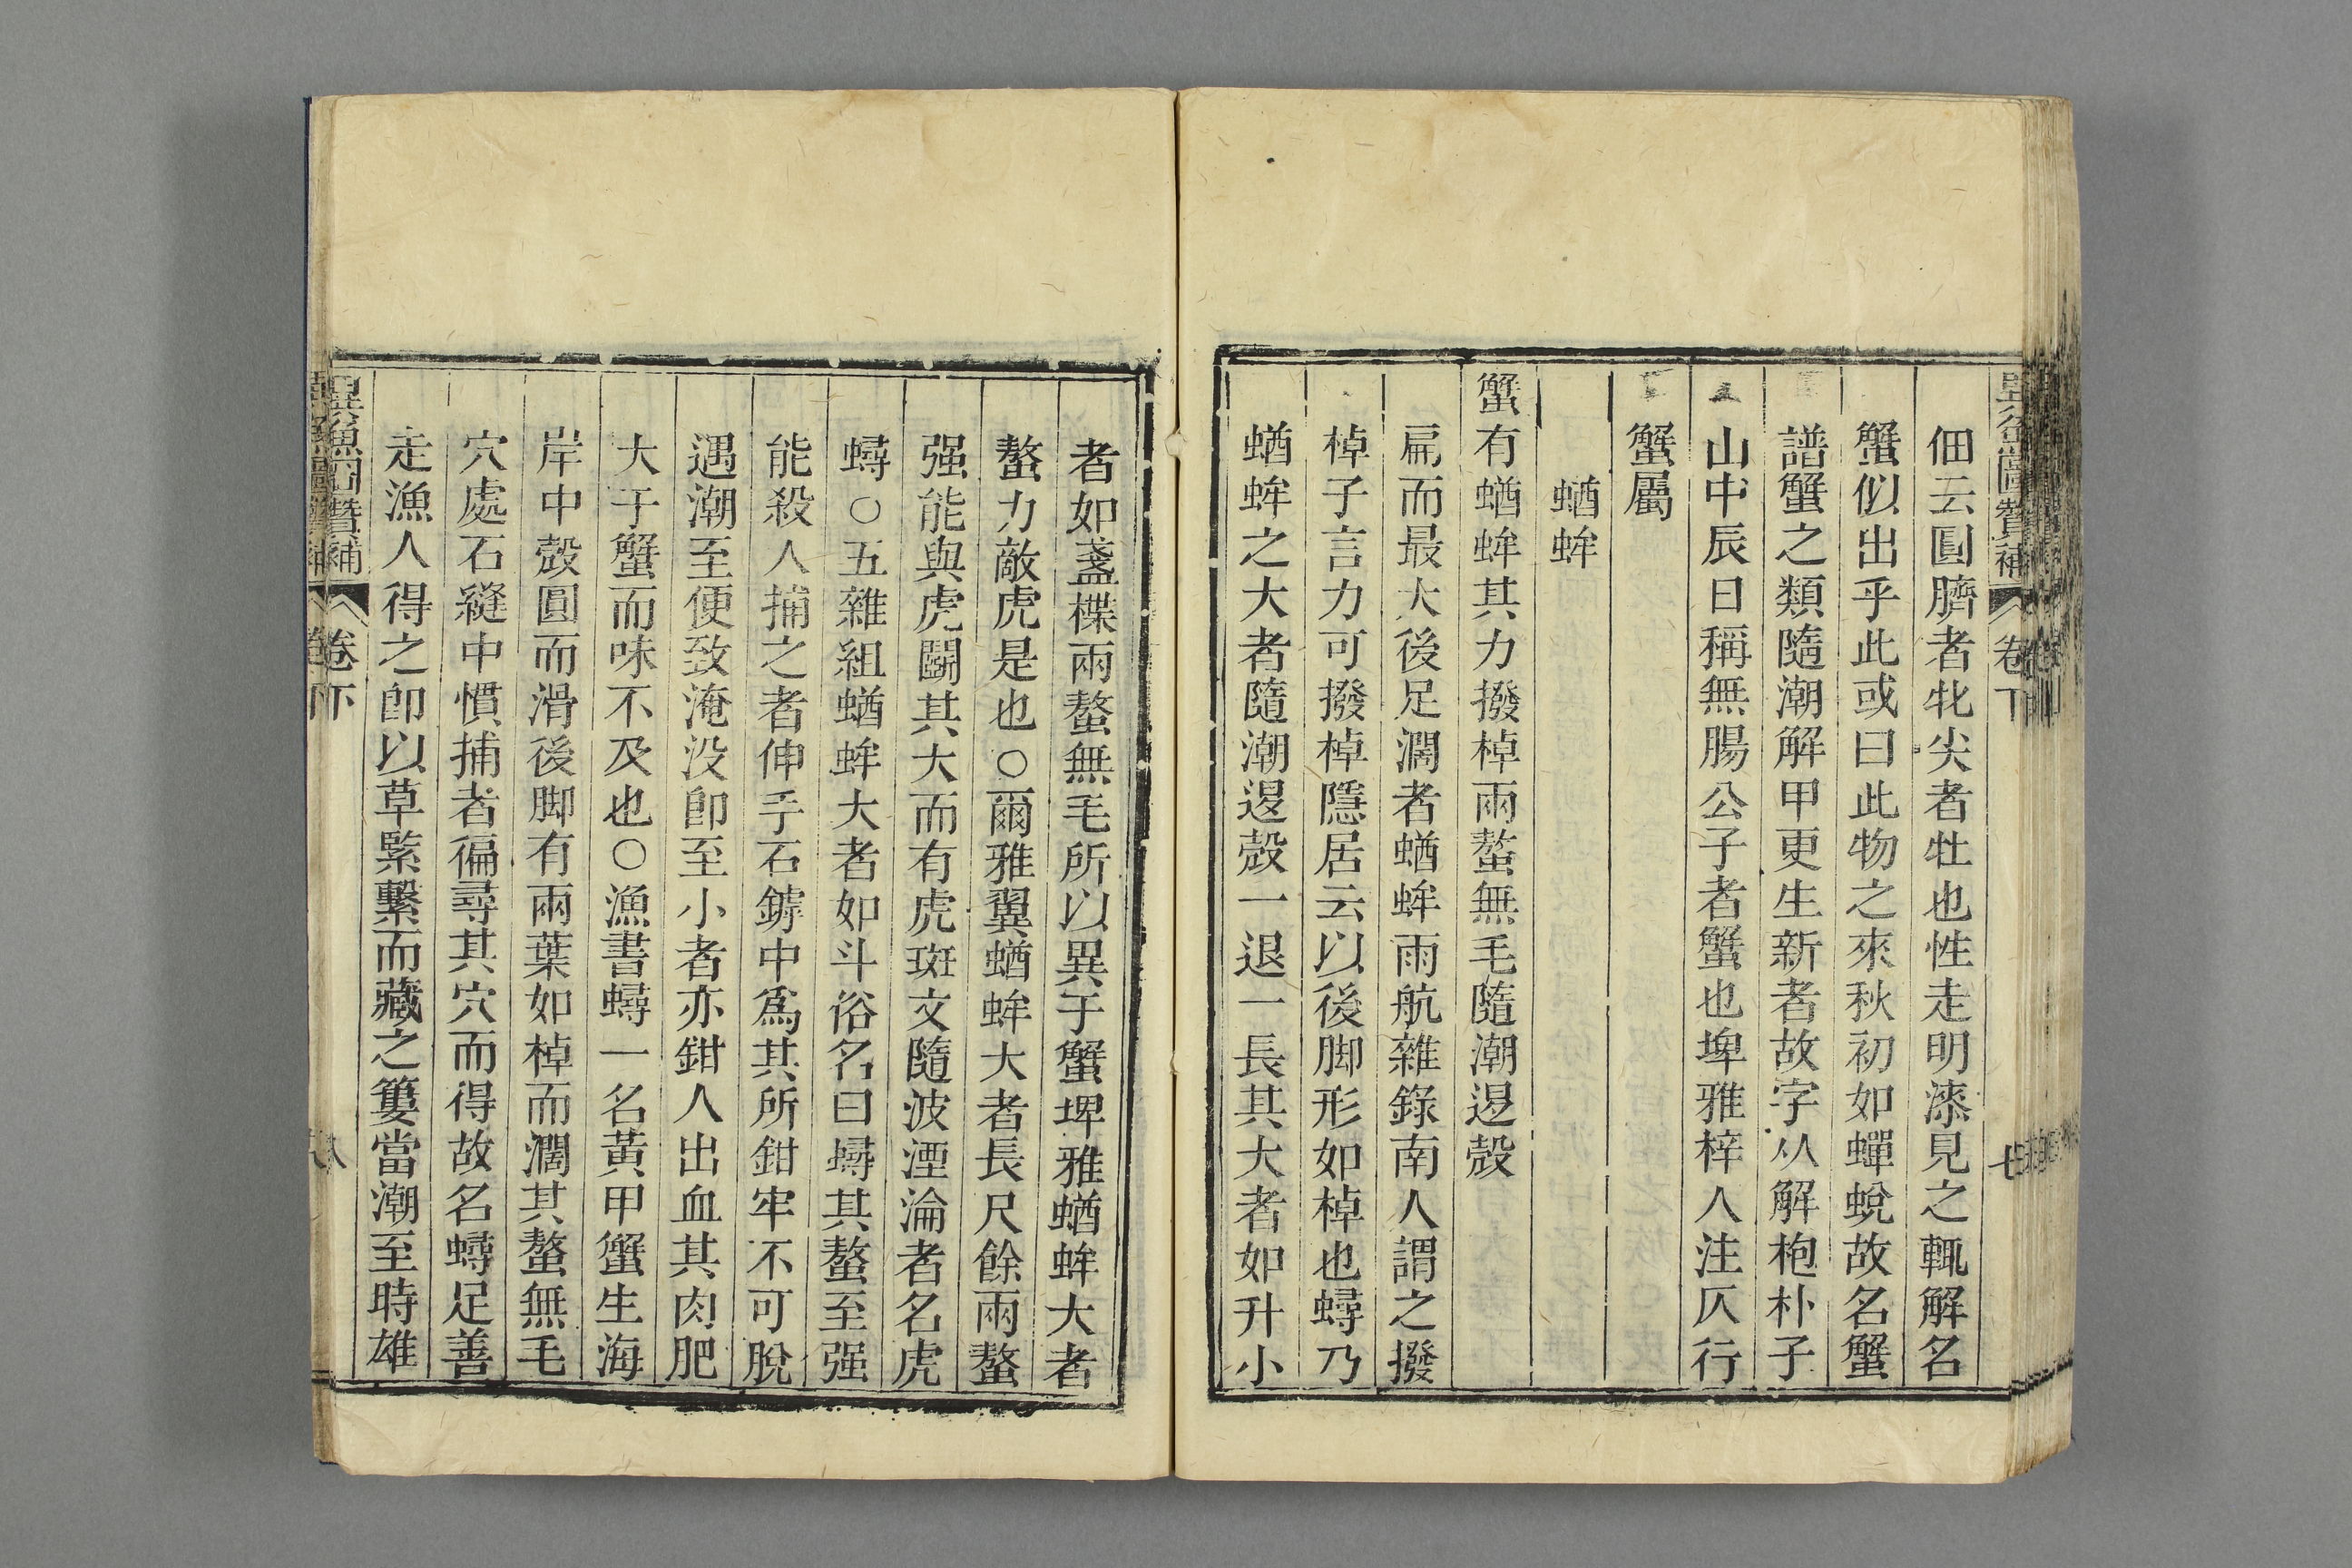 佃云圓臍者牝尖者牡也性走明漆見之輒解名
蟹似出乎此或曰此物之來秋初如蟬蛻故名蟹
譜蟹之類隨潮解甲更生新者故字从解枹朴子
山中辰日稱無腸公子者蟹也埤雅梓人注仄行
蟹屬
蝤蛑
蟹有蝤蛑其力撥棹兩螯無毛隨潮退殼
扁而最大後足濶者蝤蛑雨航雜錄南人謂之撥
棹子言力可撥棹隱居云以後脚形如棹也蟳乃
蝤蛑之大者隨潮退殼一退一長其大者如升小
者如盞楪兩螯無毛所以異于蟹埤雅蝤蛑大者
螯力敵虎是也○爾雅翼蝤蛑大者長尺餘兩螯
强能與虎鬭其大而有虎斑文隨波湮淪者名虎
蟳○五雜組蝤蛑大者如斗俗名曰蟳其螯至强
能殺人捕之者伸手石罅中爲其所鉗牢不可脫
遇潮至便致淹没卽至小者亦鉗人出血其肉肥
大于蟹而味不及也○漁書蟳一名黃甲蟹生海
岸中殼圓而滑後脚有兩葉如棹而濶其螯無毛
穴處石縫中慣捕者徧尋其穴而得故名蟳足善
走漁人得之卽以草縶繫而藏之簍當潮至時雄
異魚圖贊補
卷下
八